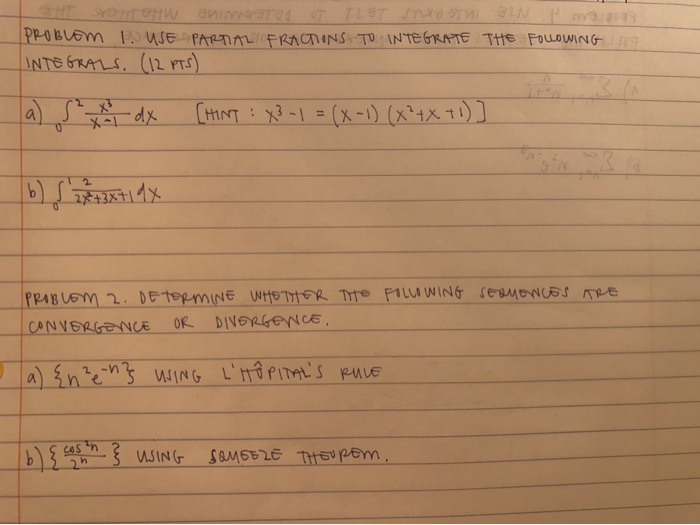 PROBLEM 1. USE PARTIAL FRACTIONS TO INTEGRATE THE FOLLOWING
INTEGRALS. (12 PTS)
a) ∫₀² x³/(x-1) dx [HINT : x³-1 = (x-1) (x²+x+1)]
b) ∫₀¹ 2/(2x²+3x+1) dx
PROBLEM 2. DETERMINE WHETHER THE FOLLOWING SEQUENCES ARE
CONVERGENCE OR DIVERGENCE.
a) {n²e⁻ⁿ} USING L'HÔPITAL'S RULE
b) {cos²n/2ⁿ} USING SQUEEZE THEOREM.